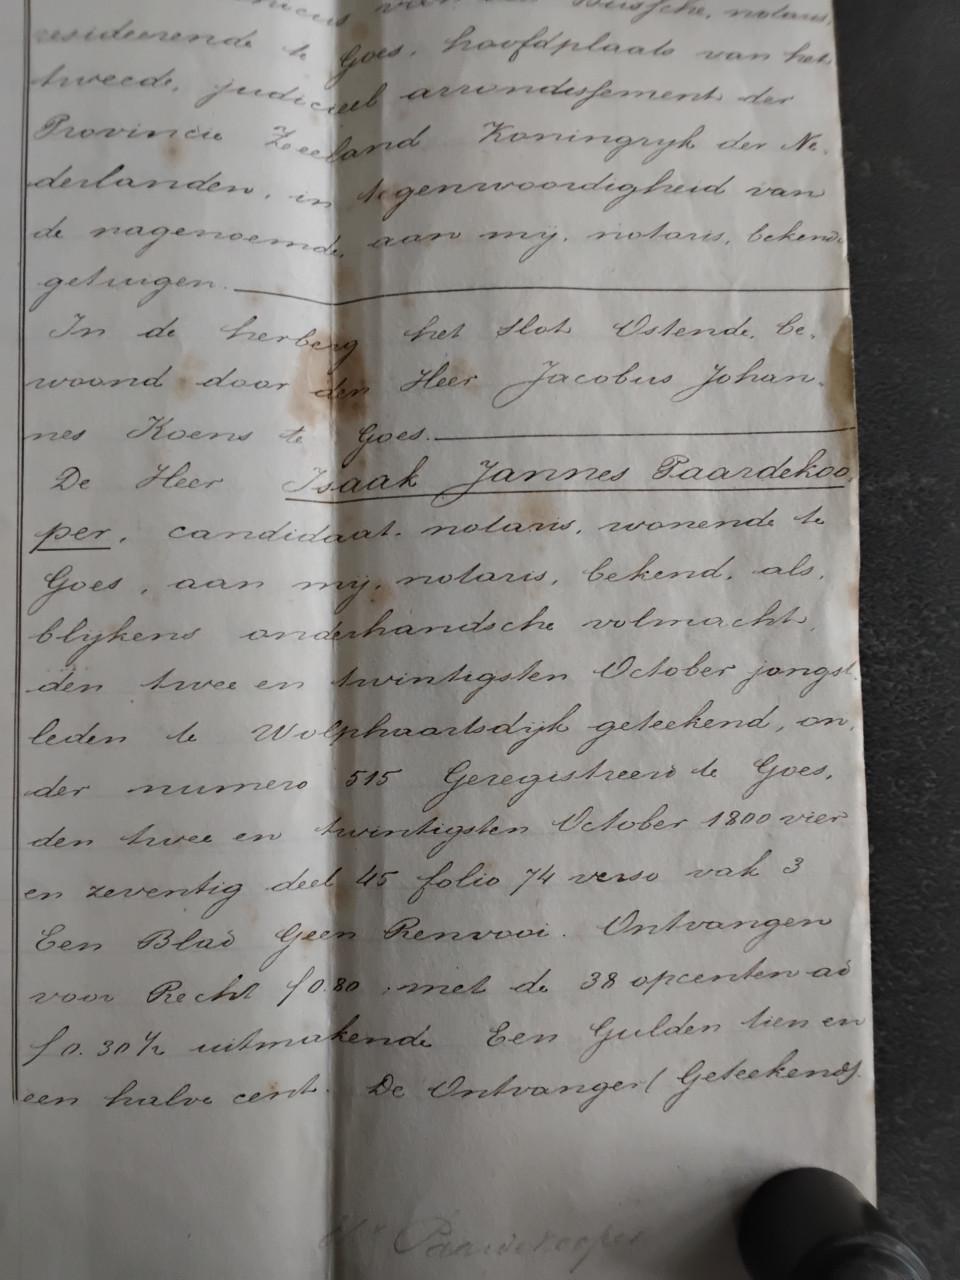 van den Bussche, notaris,
resideerende te Goes, hoofdplaats van het
tweede, judicieel arrondissement der
Provincie Zeeland Koningryk der Ne-
derlanden, in tegenwoordigheid van
de nagenoemde, aan mij, notaris, bekende
getuigen.
In de herberg het slot Ostende, be-
woond door den Heer Jacobus Johan-
nes Koens te Goes.
De Heer Isaak Jannes Paardekoo-
per, candidaat-notaris, wonende te
Goes, aan mij, notaris, bekend, als,
blijkens onderhandsche volmacht,
den twee en twintigsten October jongst-
leden te Wolphaartsdijk geteekend, on-
der numero 515 Geregistreerd te Goes,
den twee en twintigsten October 1800 vier
en zeventig deel 45 folio 74 verso vak 3
Een Blad Geen Renvooi. Ontvangen
voor Recht f 0.80, met de 38 opcenten ad
f 0.30½ uitmakende Een Gulden tien en
een halve cent. De Ontvanger (Geteekend)
Paardekooper